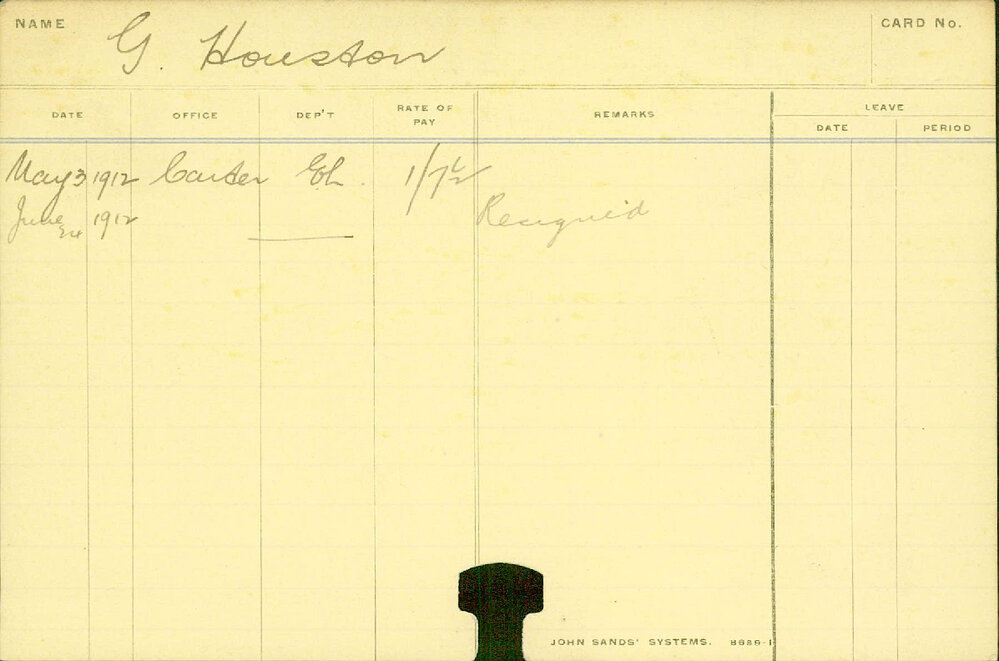 NAME G. Houston CARD No.
DATE OFFICE DEP'T RATE OF PAY REMARKS LEAVE
DATE PERIOD
May 3 1912 Carter 1/7½
June 24 1912 Resigned
JOHN SANDS' SYSTEMS. 8689-1